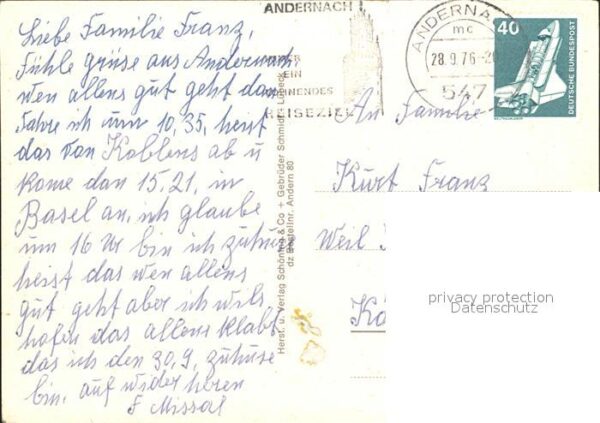 Liebe Familie Franz,
Fühle grüse aus Andernach
wen allens gut geht dan
Fahre ich um 10,35, heist
das von Koblens ab u
kome dan 15.21, in
Basel an, ich glaube
um 16 Ur bin ich zuhuse
heist das wen allens
gut geht aber ich wils
hofen das allens klabt
das ich den 30.9, zuhuse
bin, auf wider hören
F Missal
ANDERNACH
EIN
REISEZIEL
ANDERNA
mc
28.9.76-20
547
40
DEUTSCHE BUNDESPOST
Herst. u. Verlag Schöning & Co + Gebrüder Schmidt, Lübeck
dz Bestellnr. Andern 80
An Familie
Kurt Franz
Weil
privacy protection
Datenschutz